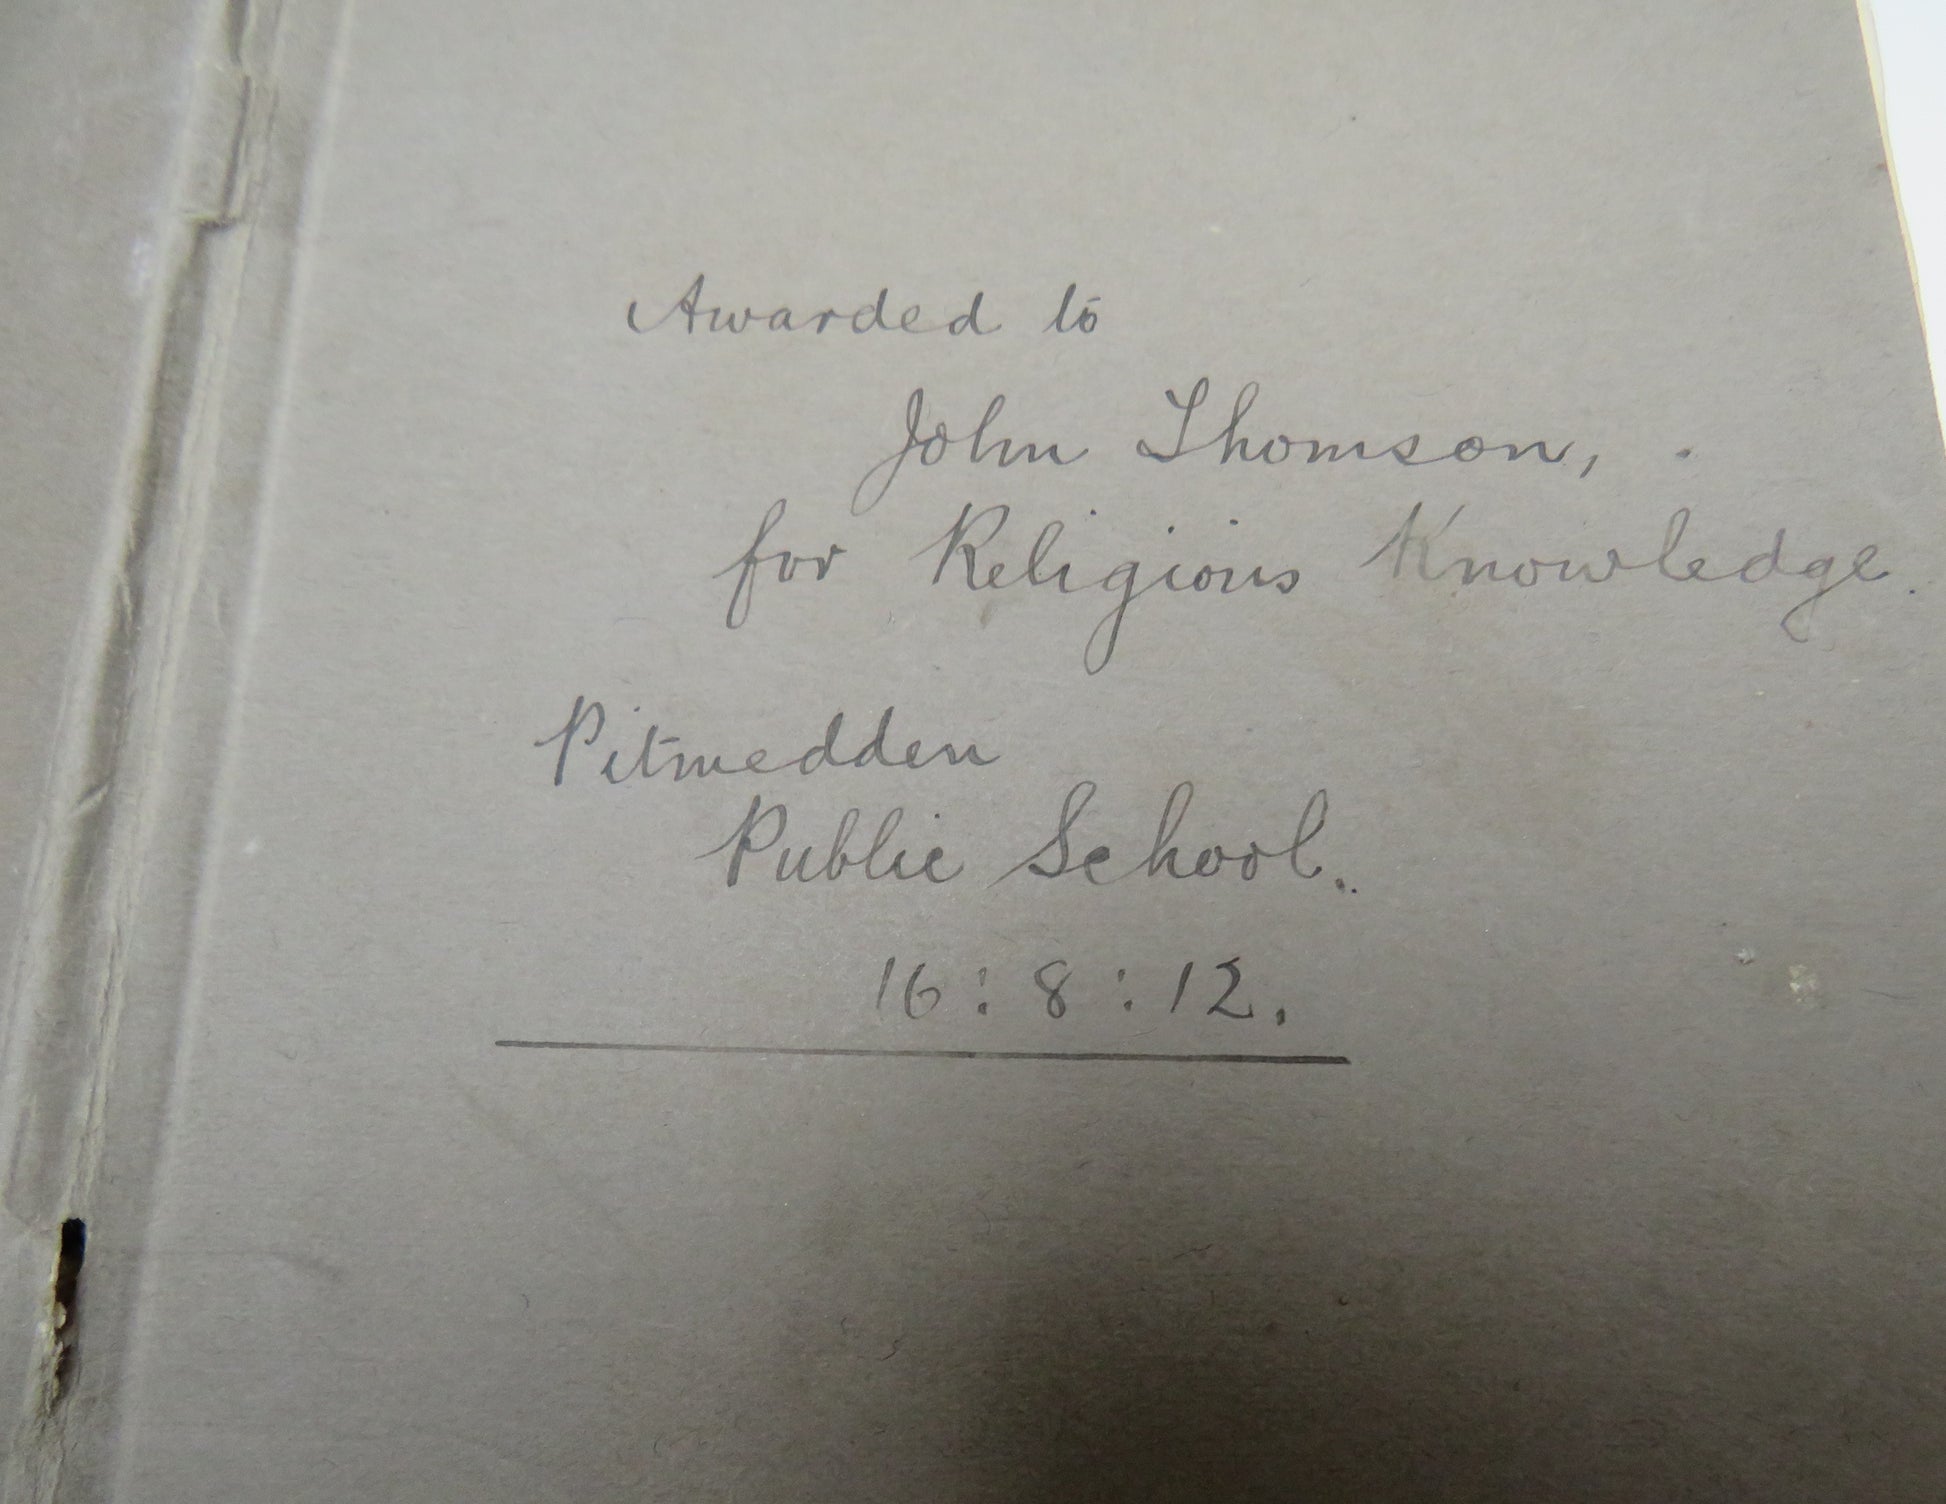 Awarded to
John Thomson,
for Religious Knowledge.
Pitmedden
Public School.
16:8:12.